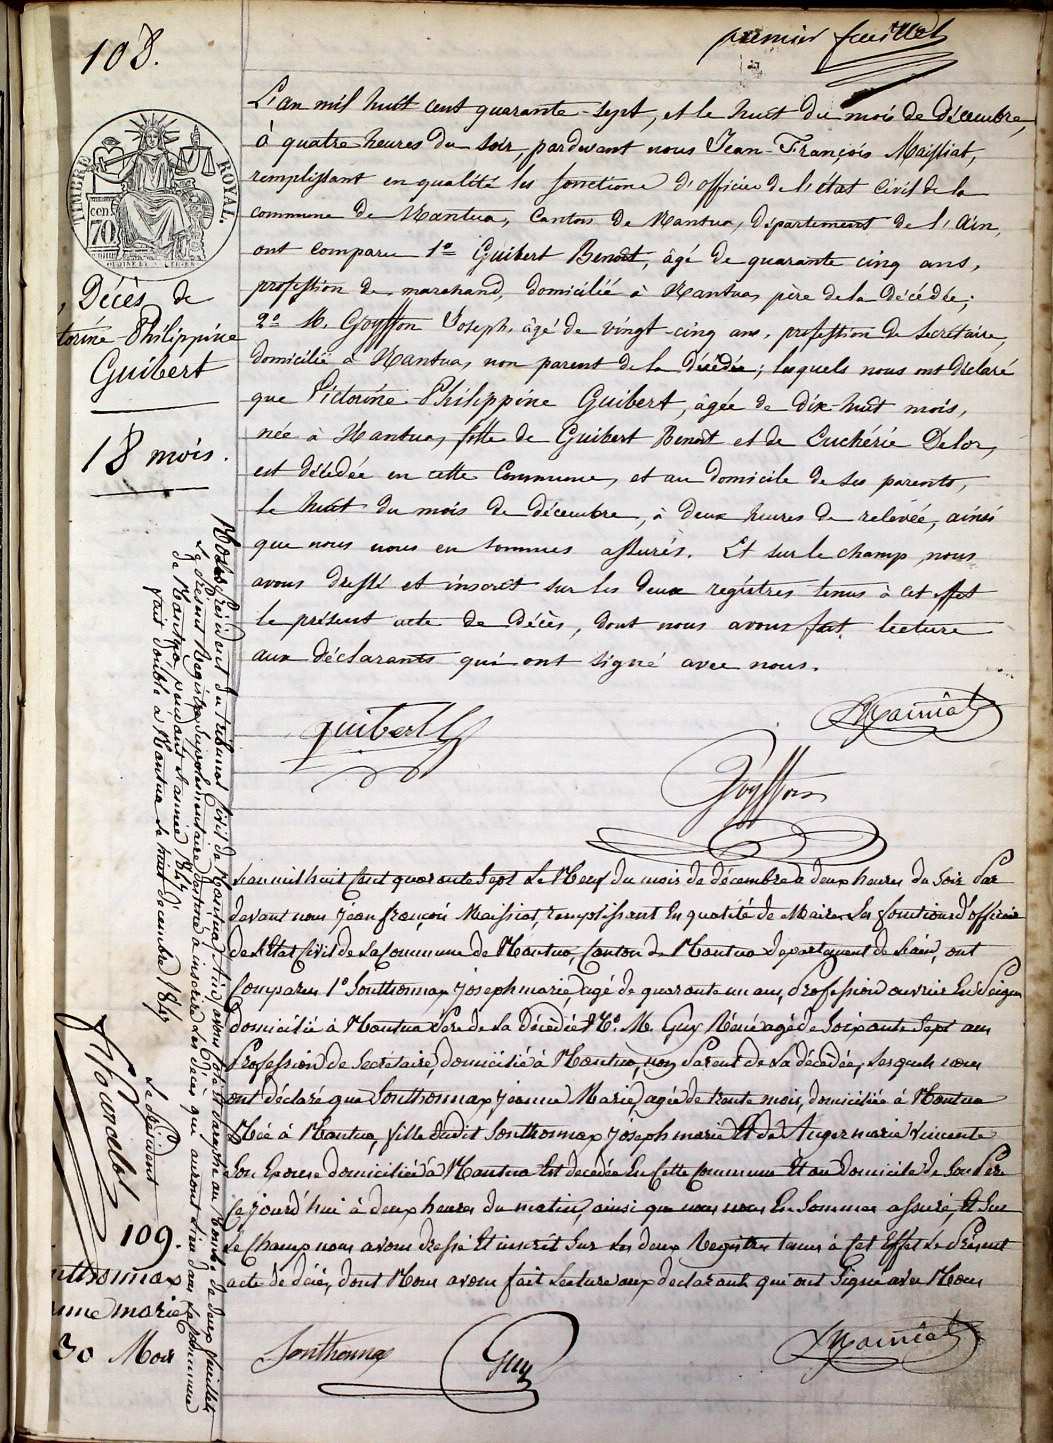 premier feuillet
108.
TIMBRE ROYAL.
cen.
70
Décès de
torine Philippine
Guibert
18 mois.
L'an mil huit cent quarante-sept, et le huit du mois de décembre,
à quatre heures du soir, pardevant nous Jean-François Maissiat,
remplissant en qualité les fonctions d'officier de l'état civil de la
commune de Nantua, Canton de Nantua, département de l'Ain,
ont comparu 1º Guibert Benoît, âgé de quarante cinq ans,
profession de marchand, domicilié à Nantua, père de la Décédée;
2º M. Goyffon Joseph, âgé de vingt-cinq ans, profession de Secrétaire,
domicilié à Nantua, non parent de la décédée; lesquels nous ont déclaré
que Victorine Philippine Guibert, âgée de dix-huit mois,
née à Nantua, fille de Guibert Benoît et de Euchérie Delor,
est décédée en cette Commune, et au domicile de ses parents,
le huit du mois de décembre, à deux heures de relevée, ainsi
que nous nous en sommes assurés. Et sur le champ, nous
avons dressé et inscrit sur les deux registres tenus à cet effet
le présent acte de décès, dont nous avons fait lecture
aux déclarants qui ont signé avec nous.
guibert
Maissiat
Goyffon
Nous Président du tribunal Civil de Nantua, avons coté et paraphé au nombre de deux feuillets
le présent Registre supplémentaire destiné à inscrire les décès qui auront lieu dans la Commune
de Nantua, pendant l'année 1847
fait double à Nantua le huit décembre 1847
Le Président
L'an mil huit cent quarante sept le Neuf du mois de décembre à deux heures du Soir Par
devant nous Jean françois Maissiat, remplissant En qualité de Maire Les fonctions d'officier
de L'Etat Civil de La Commune de Nantua, Canton de Nantua département de L'ain, ont
Comparu 1º Sonthonnax Joseph marie, agé de quarante un ans, Profession ouvrier En Peigne
domicilié à Nantua Père de la Décédée 2º. M. Guy Réné agé de Soixante Sept ans
Profession de Secrétaire, domicilié à Nantua, non Parent de La décédée, Lesquels nous
ont déclaré que Sonthonnax Jeanne Marie, agée de trente mois, domiciliée à Nantua
Née à Nantua, fille dudit Sonthonnax Joseph marie Et de Auger marie vincente
Son Epouse domiciliée à Nantua Est décédée En Cette Commune Et au Domicile de Son Père
Ce jourd'hui à deux heures du matin, ainsi que nous nous En Sommes assuré, Et Sur
Le Champ nous avons dressé Et inscrit Sur Les deux Registres tenus à Cet Effet Le Présent
acte de décès, dont Nous avons fait Lecture aux déclarants qui ont Signé avec Nous
109.
nthonnax
anne marie
30 Mois
Sonthonnax
Guy
Maissiat